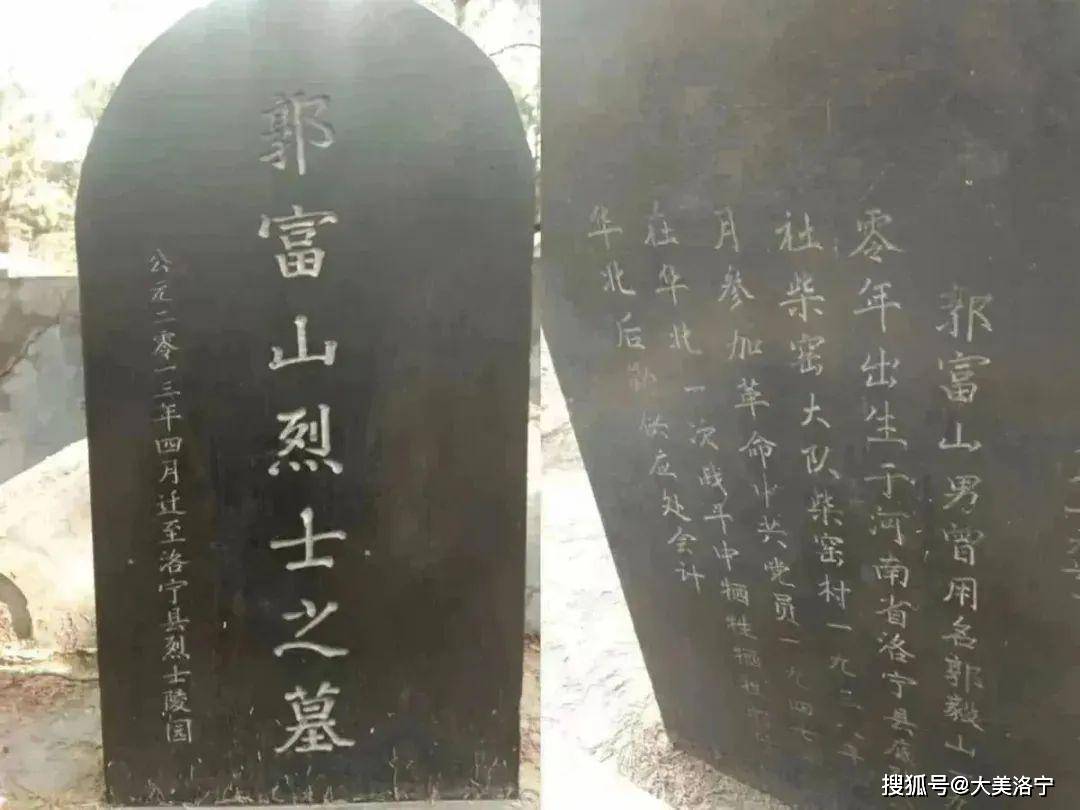 郭富山烈士之墓
公元二零一三年四月迁至洛宁县烈士陵园
郭富山男曾用名郭毅山
零年出生于河南省洛宁县底
社柴窑大队柴窑村一九二八年
月参加革命中共党员一九四七
在华北一次战斗中牺牲牺牲
华北后勤供应处会计
搜狐号@大美洛宁